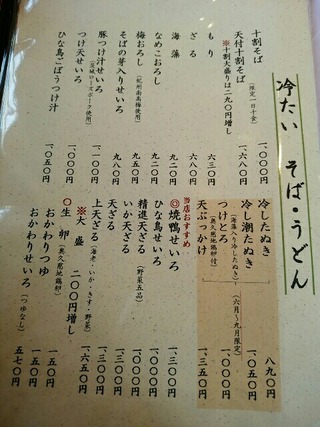 冷たい そば・うどん
十割そば（限定一日十食） 一、〇〇〇円
天付十割そば 一、六八〇円
※十割大盛りは二九〇円増し
もり 六三〇円
ざる 七五〇円
海藻 九二〇円
なめこおろし 九二〇円
梅おろし（紀州南高梅使用） 九五〇円
そばの芽入りせいろ 九八〇円
豚つけ汁せいろ（茨城ローズポーク使用） 一、一〇〇円
つけ天せいろ 一、〇〇〇円
ひな鳥ごぼうつけ汁 一、〇五〇円
冷したぬき 八九〇円
冷し潮たぬき（海藻入り冷したぬき） 一、〇五〇円
つけとろ（奥久慈地鶏卵付） 一、〇〇〇円
天ぶっかけ 一、三五〇円
（六月～九月限定）
当店おすすめ
◎焼鴨せいろ 一、三〇〇円
ひな鳥せいろ 一、〇〇〇円
精進天ざる（野菜五品） 一、〇〇〇円
いか天ざる 一、三〇〇円
天ざる 一、三〇〇円
上天ざる（海老・いか・きす・野菜） 一、六五〇円
※大盛 二〇〇円増し
○生卵（奥久慈地鶏卵） 一〇〇円
おかわりつゆ 一五〇円
おかわりせいろ（つゆなし） 五七〇円